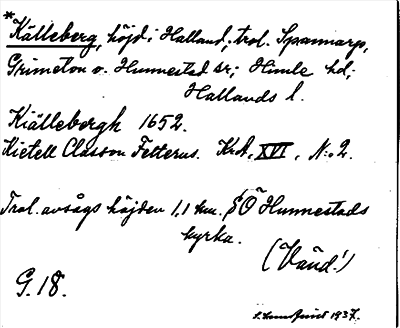 *Källeberg, höjd i Halland; trol. Spannarp,
Grimeton o. Hunnestad sr; Himle hd;
Hallands l.
Kiällebergh 1652.
Kietell Classon Felterus. Krt. XVI, N:o 2.
Trol. avságs höjden 1,1 km. SÖ Hunnestads
kyrka.
(Vänd!)
G. 18.
1937.